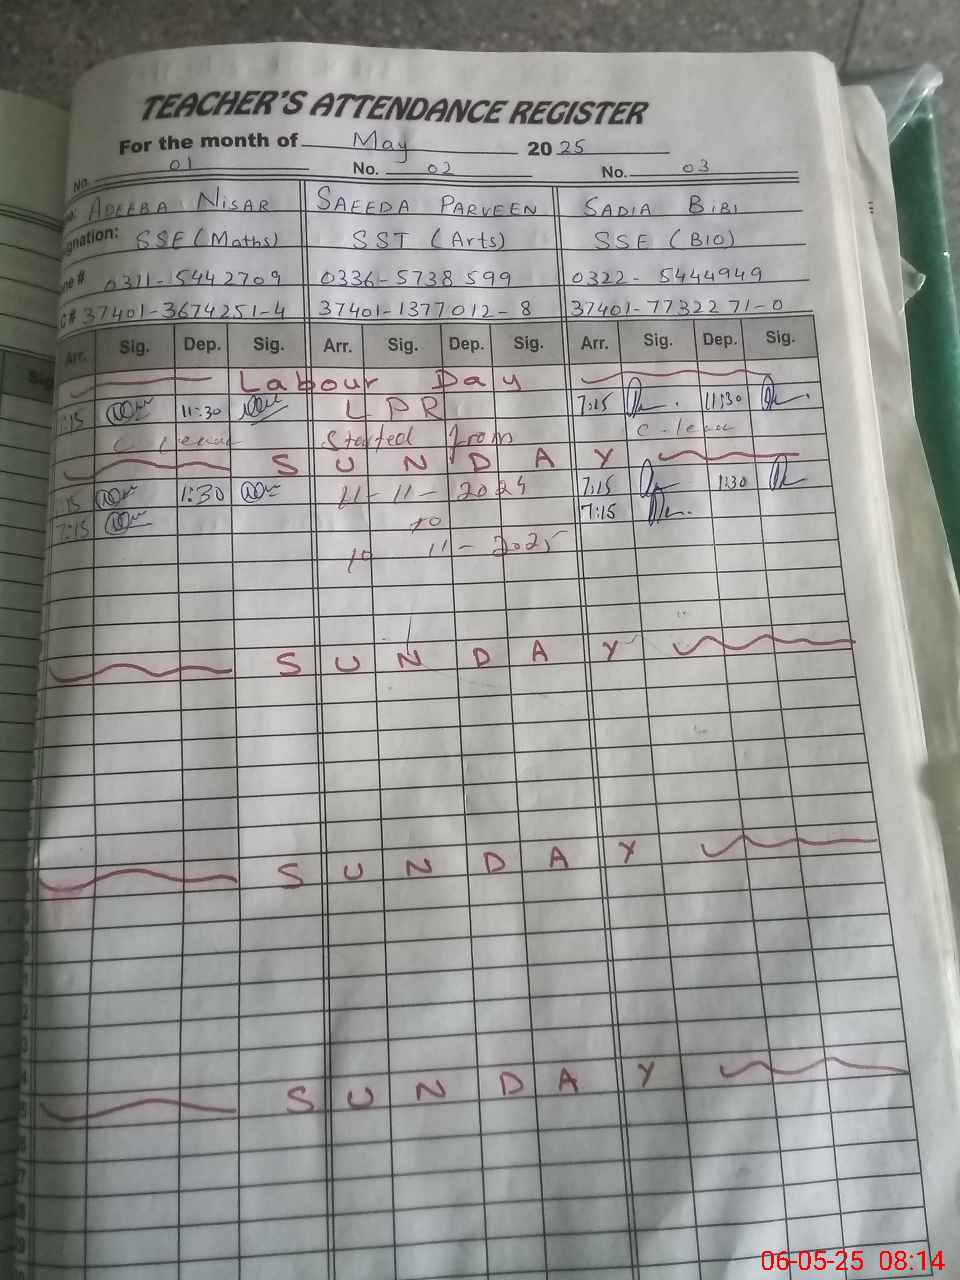 TEACHER'S ATTENDANCE REGISTER
For the month of May 2025
No. 01 No. 02 No. 03
ADEEBA NISAR SAEEDA PARVEEN SADIA BIBI
gnation: SSE (Maths) SST (Arts) SSE (BIO)
ne # 0311-5442709 0336-5738599 0322-5444949
C # 37401-3674251-4 37401-1377012-8 37401-7732271-0
Arr. Sig. Dep. Sig. Arr. Sig. Dep. Sig. Arr. Sig. Dep. Sig.
Labour Day
:15 11:30 LPR 7:15 11:30
C. leave Started from C. leave
SUNDAY
:15 1:30 11-11-2024 7:15 1:30
7:15 to 7:15
10 11-2025
SUNDAY
SUNDAY
SUNDAY
Sig
06-05-25 08:14